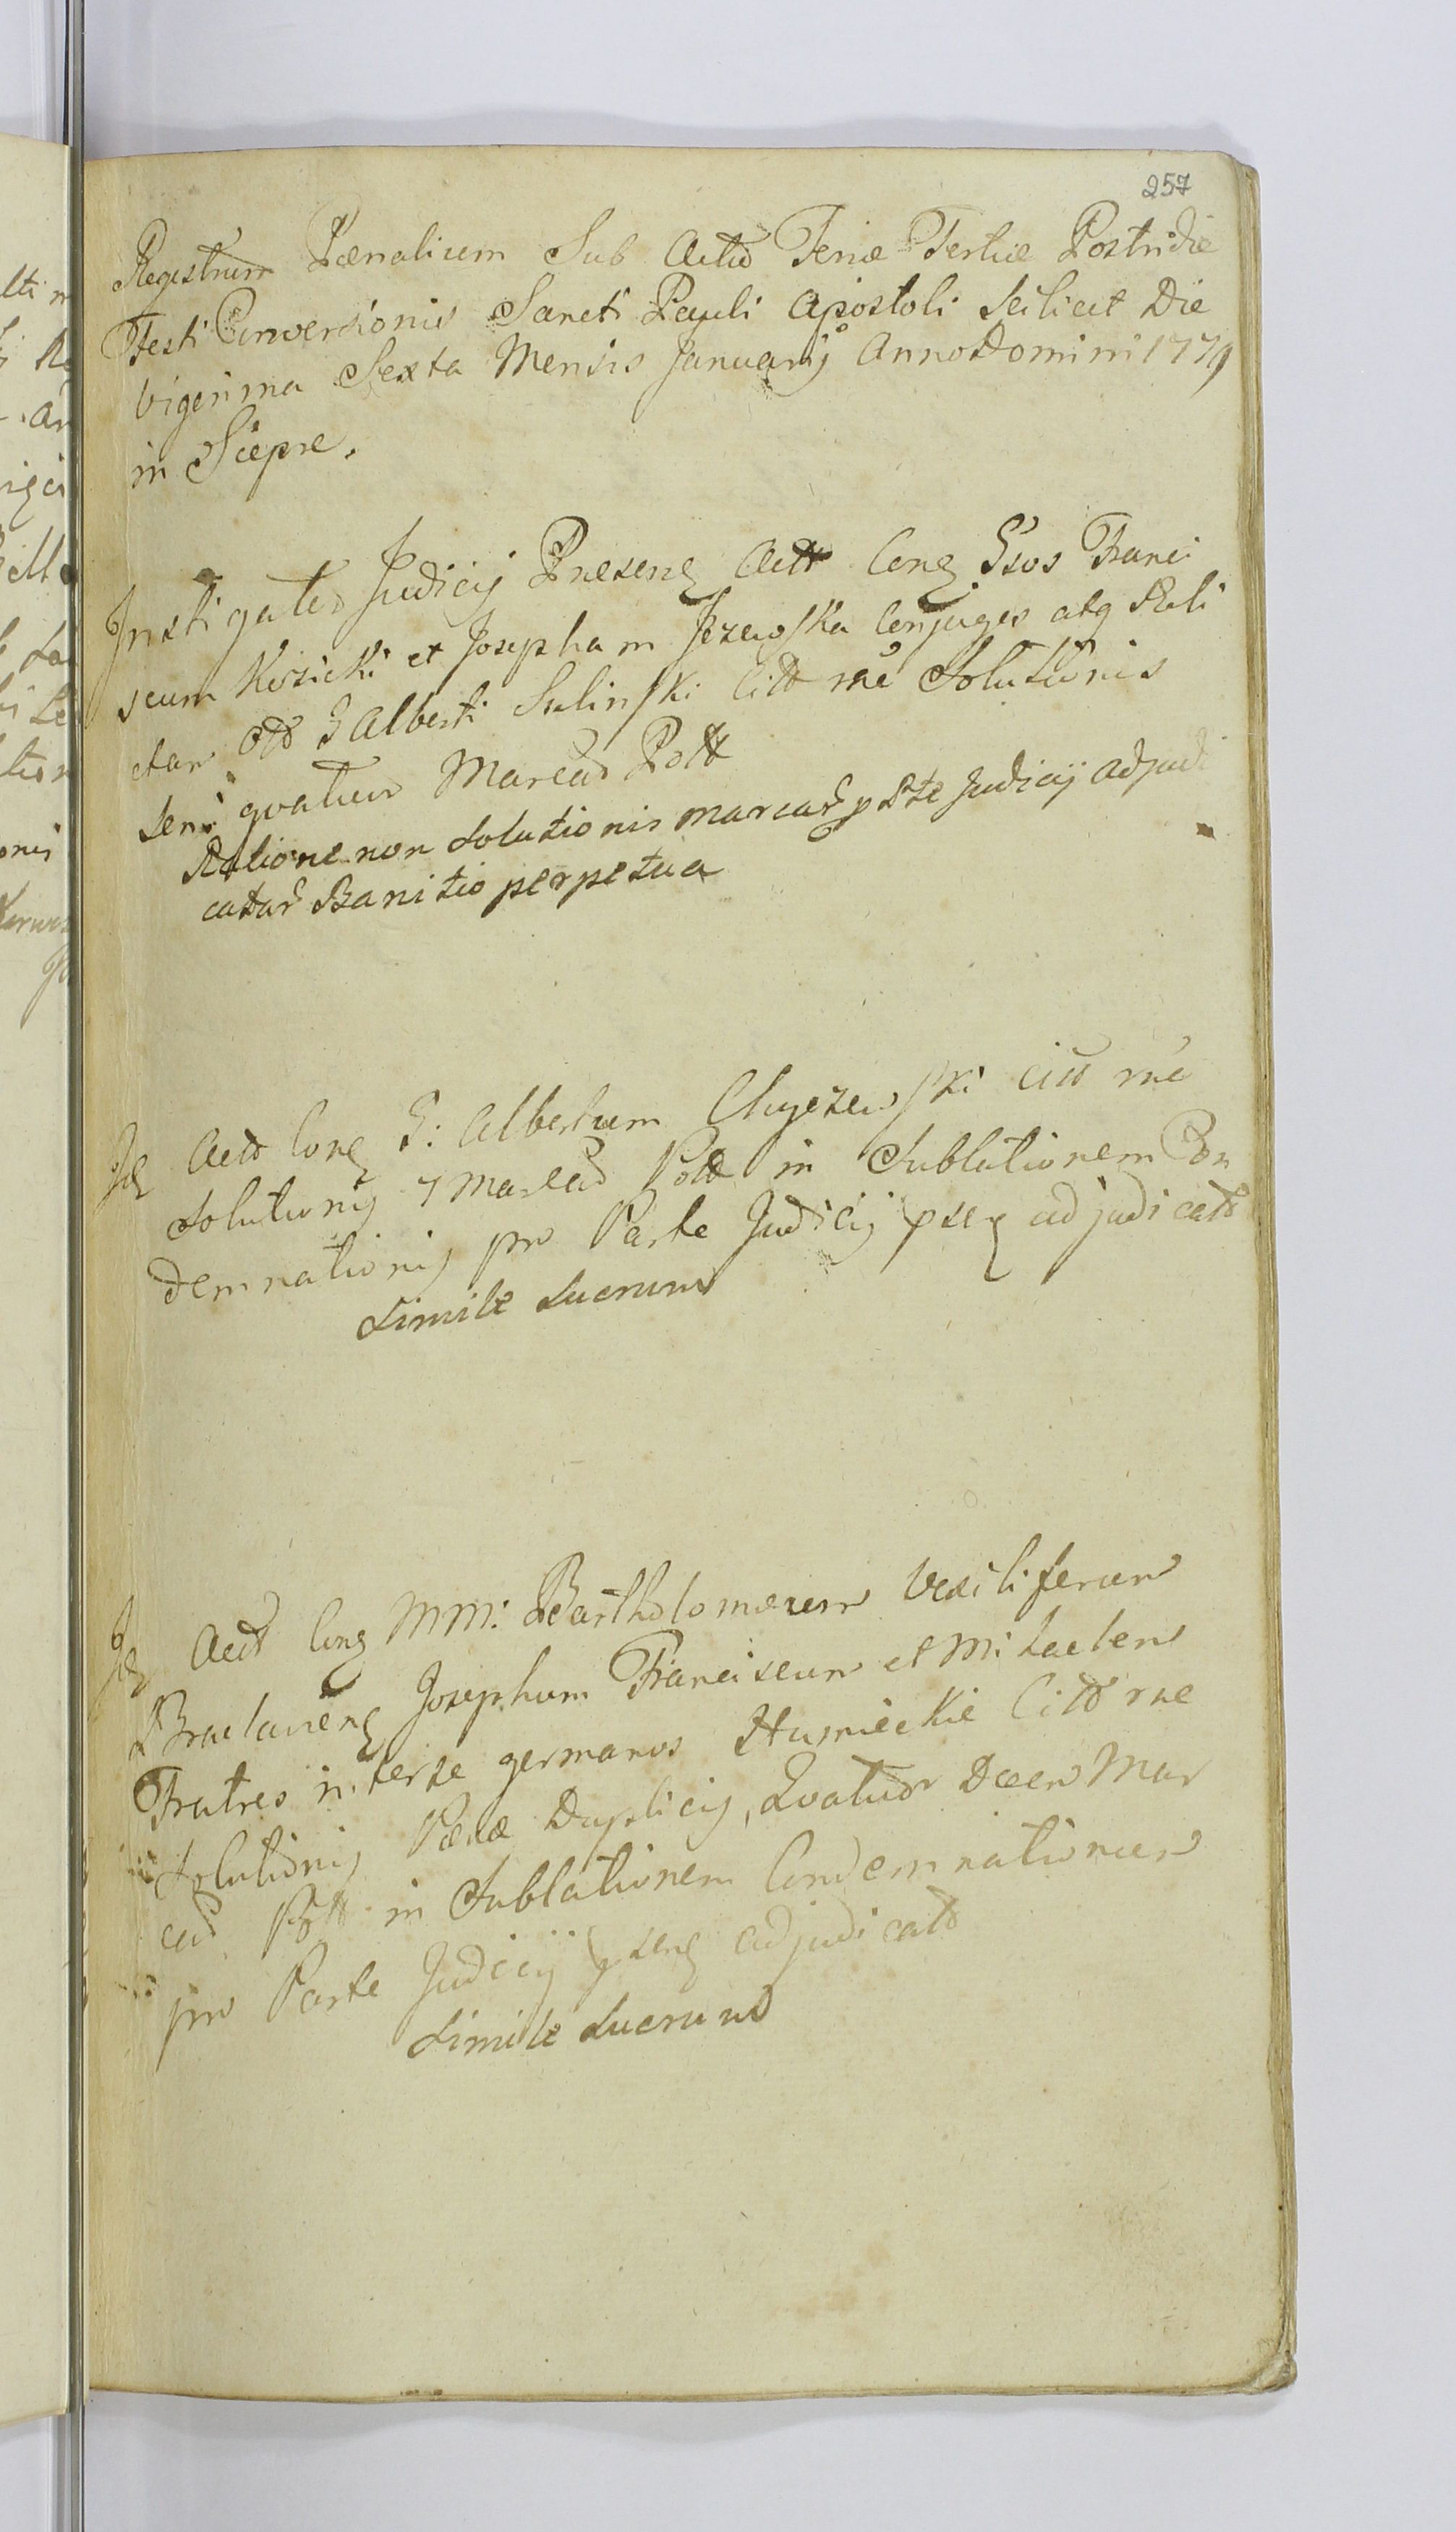 257
Registrum Pœnalium Sub Actu Feriæ Tertiæ Postridie
Festi Conversionis Sancti Pauli Apostoli Scilicet Die
Vigesima Sexta Mensis Januarij Anno Domini 1779
in Sierpre.
Instigator Judicij Presens Actt Conq Gsos Franci
scum Kosicki et Josepham Jezewska Conjuges atq Reli
ctam Ott G Alberti Sulinski Citt rne Solutionis
seni quatuor Marcar Poltt
Ratione non Solutionis marcar p Pte Judicij adjudi
catar Banitio perpetua
Id Actt Conq G: Albertum Chyczewski Citt rne
Solutionis 7 Marcar Poltt in Sublationem Con
demnationis pro Parte Judicij psen adjudicatt
Simile Lucrum
Id Actt Conq MM: Bartholomæum Vexiliferum
Braclaviens Josephum Franciscum et Michaelem
Fratres inter se germanos Humieckie Citt rne
Solutionis Pænæ Duplicis, Quatuor Decem Mar
car Poltt in Sublationem Condemnationum
pro Parte Judicij psens adjudicatt
Simile Lucrum